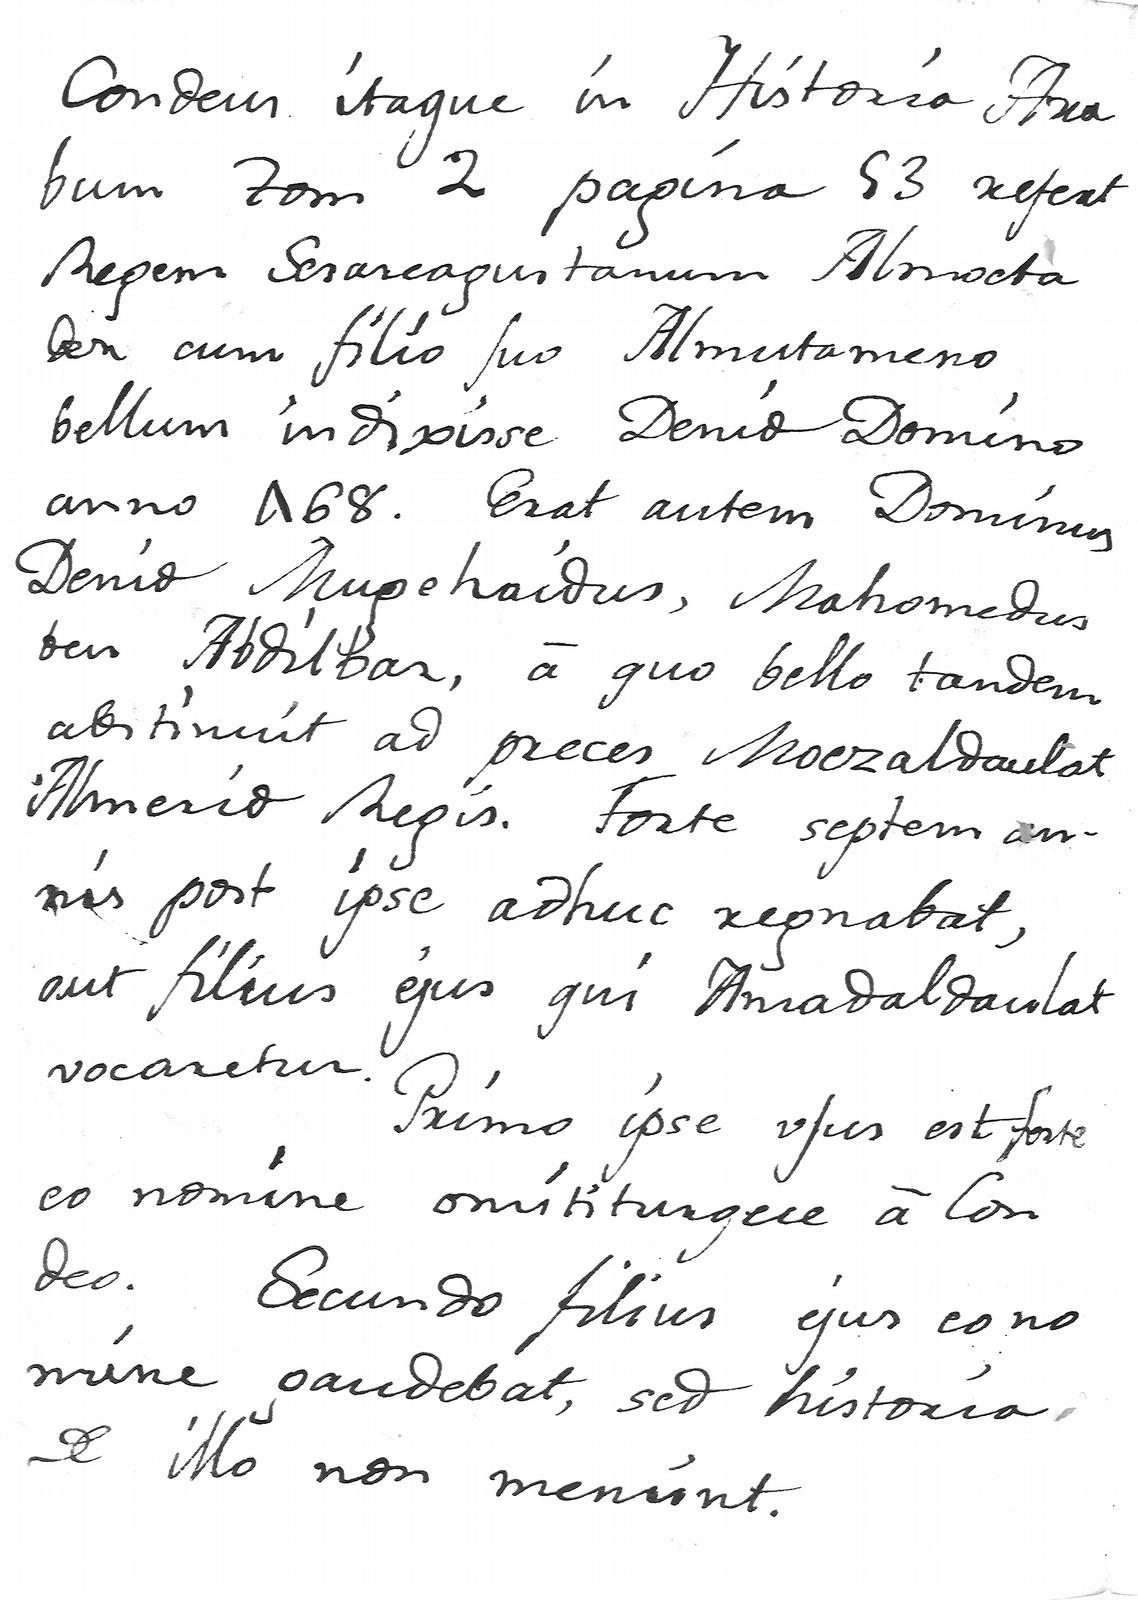 Condeus itaque in Historia Ara
bum Tom 2 pagina 53 refert
Regem Sesarcagustanum Almocta
der cum filio suo Almutameno
bellum indixisse Deniæ Domino
anno 468. Erat autem Dominus
Deniæ Mugehaidus, Mahomedus
ben Abdilbar, ā quo bello tandem
abstinuit ad preces Moezaldaulat
Almeriæ Regis. Forte septem an-
nis post ipse adhuc regnabat,
aut filius ejus qui Amadaldaulat
vocaretur.
Primo ipse usus est forte
eo nomine omititurque ā Con
deo. Secundo filius ejus eo no
mine gaudebat, sed historia
illo non meniint.